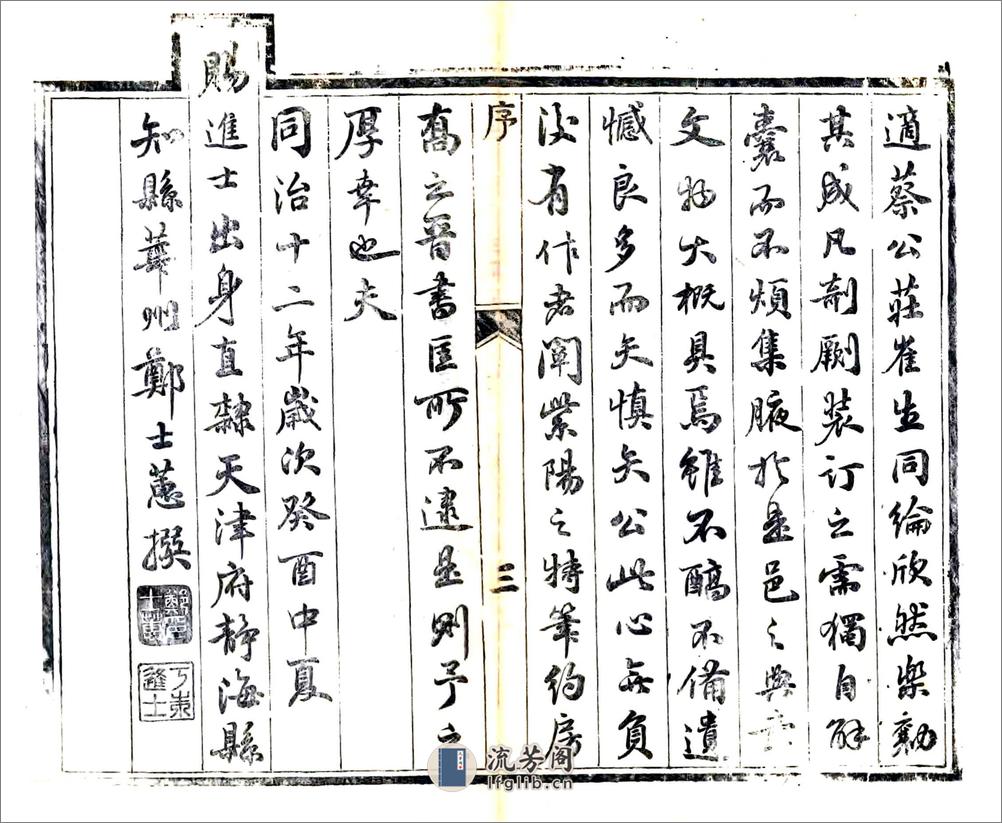 適蔡公莊崔生同綸欣然樂勷
其成凡剞劂裝訂之需獨自解
囊而不煩集腋於是邑之典章
文物大概具焉雖不醇不備遺
憾良多而矢慎矢公此心無負
後有作者闡紫陽之特筆約房
序
三
喬之晉書匡所不逮是則予之
厚幸也夫
同治十二年歲次癸酉中夏
賜進士出身直隸天津府靜海縣
知縣華州鄭士蕙撰
流芳阁
lfglib.cn